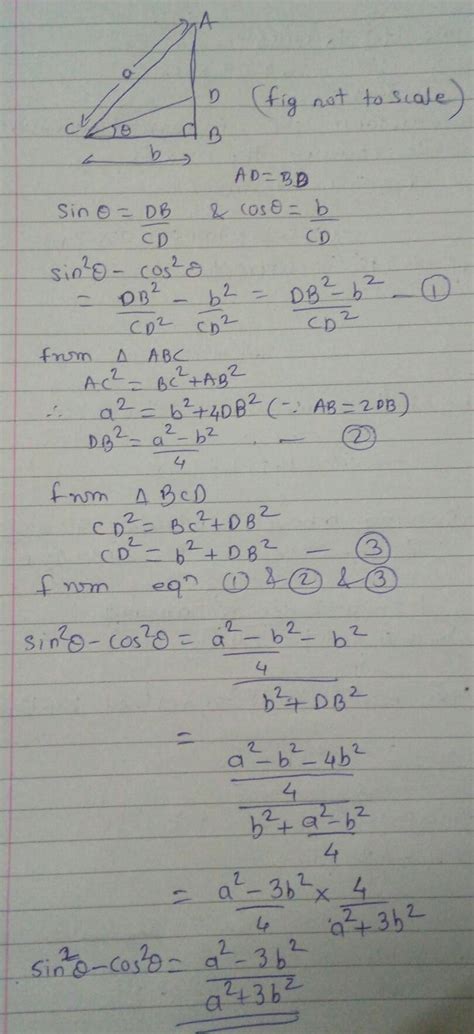 A
a
D (fig not to scale)
C θ B
b
AD = BD
sin θ = DB/CD & cos θ = b/CD
sin²θ - cos²θ
= DB²/CD² - b²/CD² = (DB² - b²)/CD² — ①
from Δ ABC
AC² = BC² + AB²
∴ a² = b² + 4DB² (∵ AB = 2DB)
DB² = (a² - b²)/4 — ②
from Δ BCD
CD² = BC² + DB²
CD² = b² + DB² — ③
from eqn ① & ② & ③
sin²θ - cos²θ = ((a² - b²)/4 - b²)/(b² + DB²)
= ((a² - b² - 4b²)/4)/(b² + (a² - b²)/4)
= (a² - 3b²)/4 × 4/(a² + 3b²)
sin²θ - cos²θ = (a² - 3b²)/(a² + 3b²)